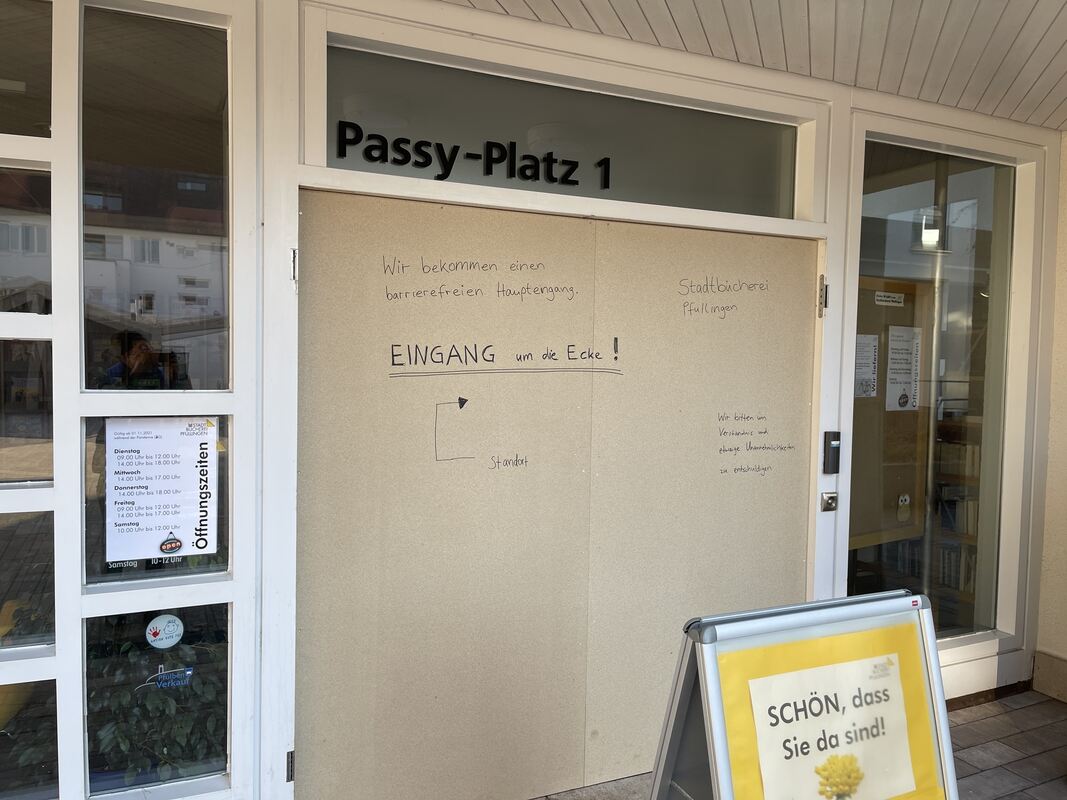 Passy-Platz 1
Wir bekommen einen
barrierefreien Hauptengang.
Stadtbücherei
Pfullingen
EINGANG um die Ecke !
Standort
Wir bitten um
Verständnis und
etwaige Unannehmlichkeiten
zu entschuldigen
STADT
BÜCHEREI
PFULLINGEN
Gültig ab 01.11.2021
Öffnungszeiten
Dienstag
09.00 Uhr bis 12.00 Uhr
14.00 Uhr bis 18.00 Uhr
Mittwoch
14.00 Uhr bis 17.00 Uhr
Donnerstag
14.00 Uhr bis 18.00 Uhr
Freitag
09.00 Uhr bis 12.00 Uhr
14.00 Uhr bis 17.00 Uhr
Samstag
10.00 Uhr bis 12.00 Uhr
open
Samstag 10-12 Uhr
Pfulben
Verkauf
Wir liefern!
Öffnungszeiten
SCHÖN, dass
Sie da sind!